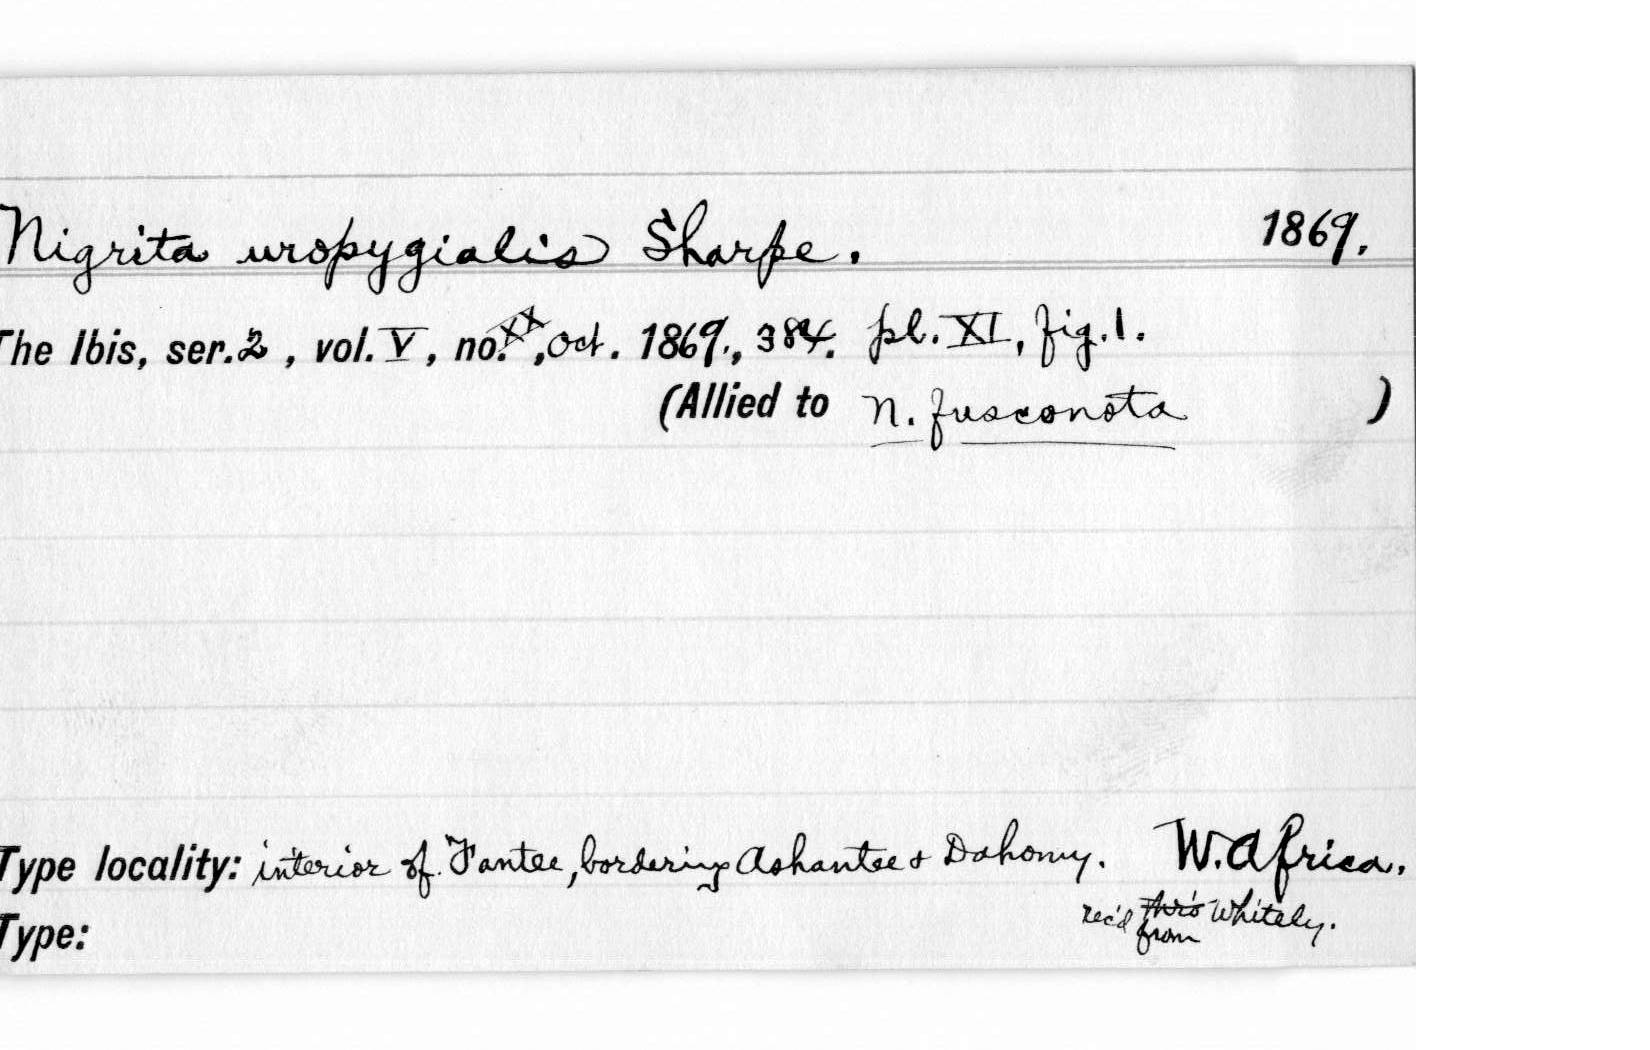 Nigrita uropygialis Sharpe. 1869.
The Ibis, ser.2, vol. V, no. XX, Oct. 1869., 384. pl. XI, fig.1.
(Allied to N. fusconota )
Type locality: interior of Fantee, bordering Ashantee & Dahomy. W. Africa.
rec'd thro Whitely.
from
Type: